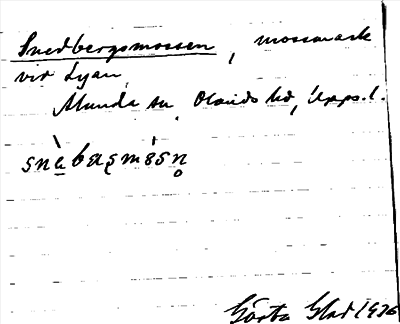 Snedbergsmossen, mossmark
vid Lyan,
Alunda sn, Olands hd, Upps. l.
snèbærsmósn̥
Gösta Glad 1936